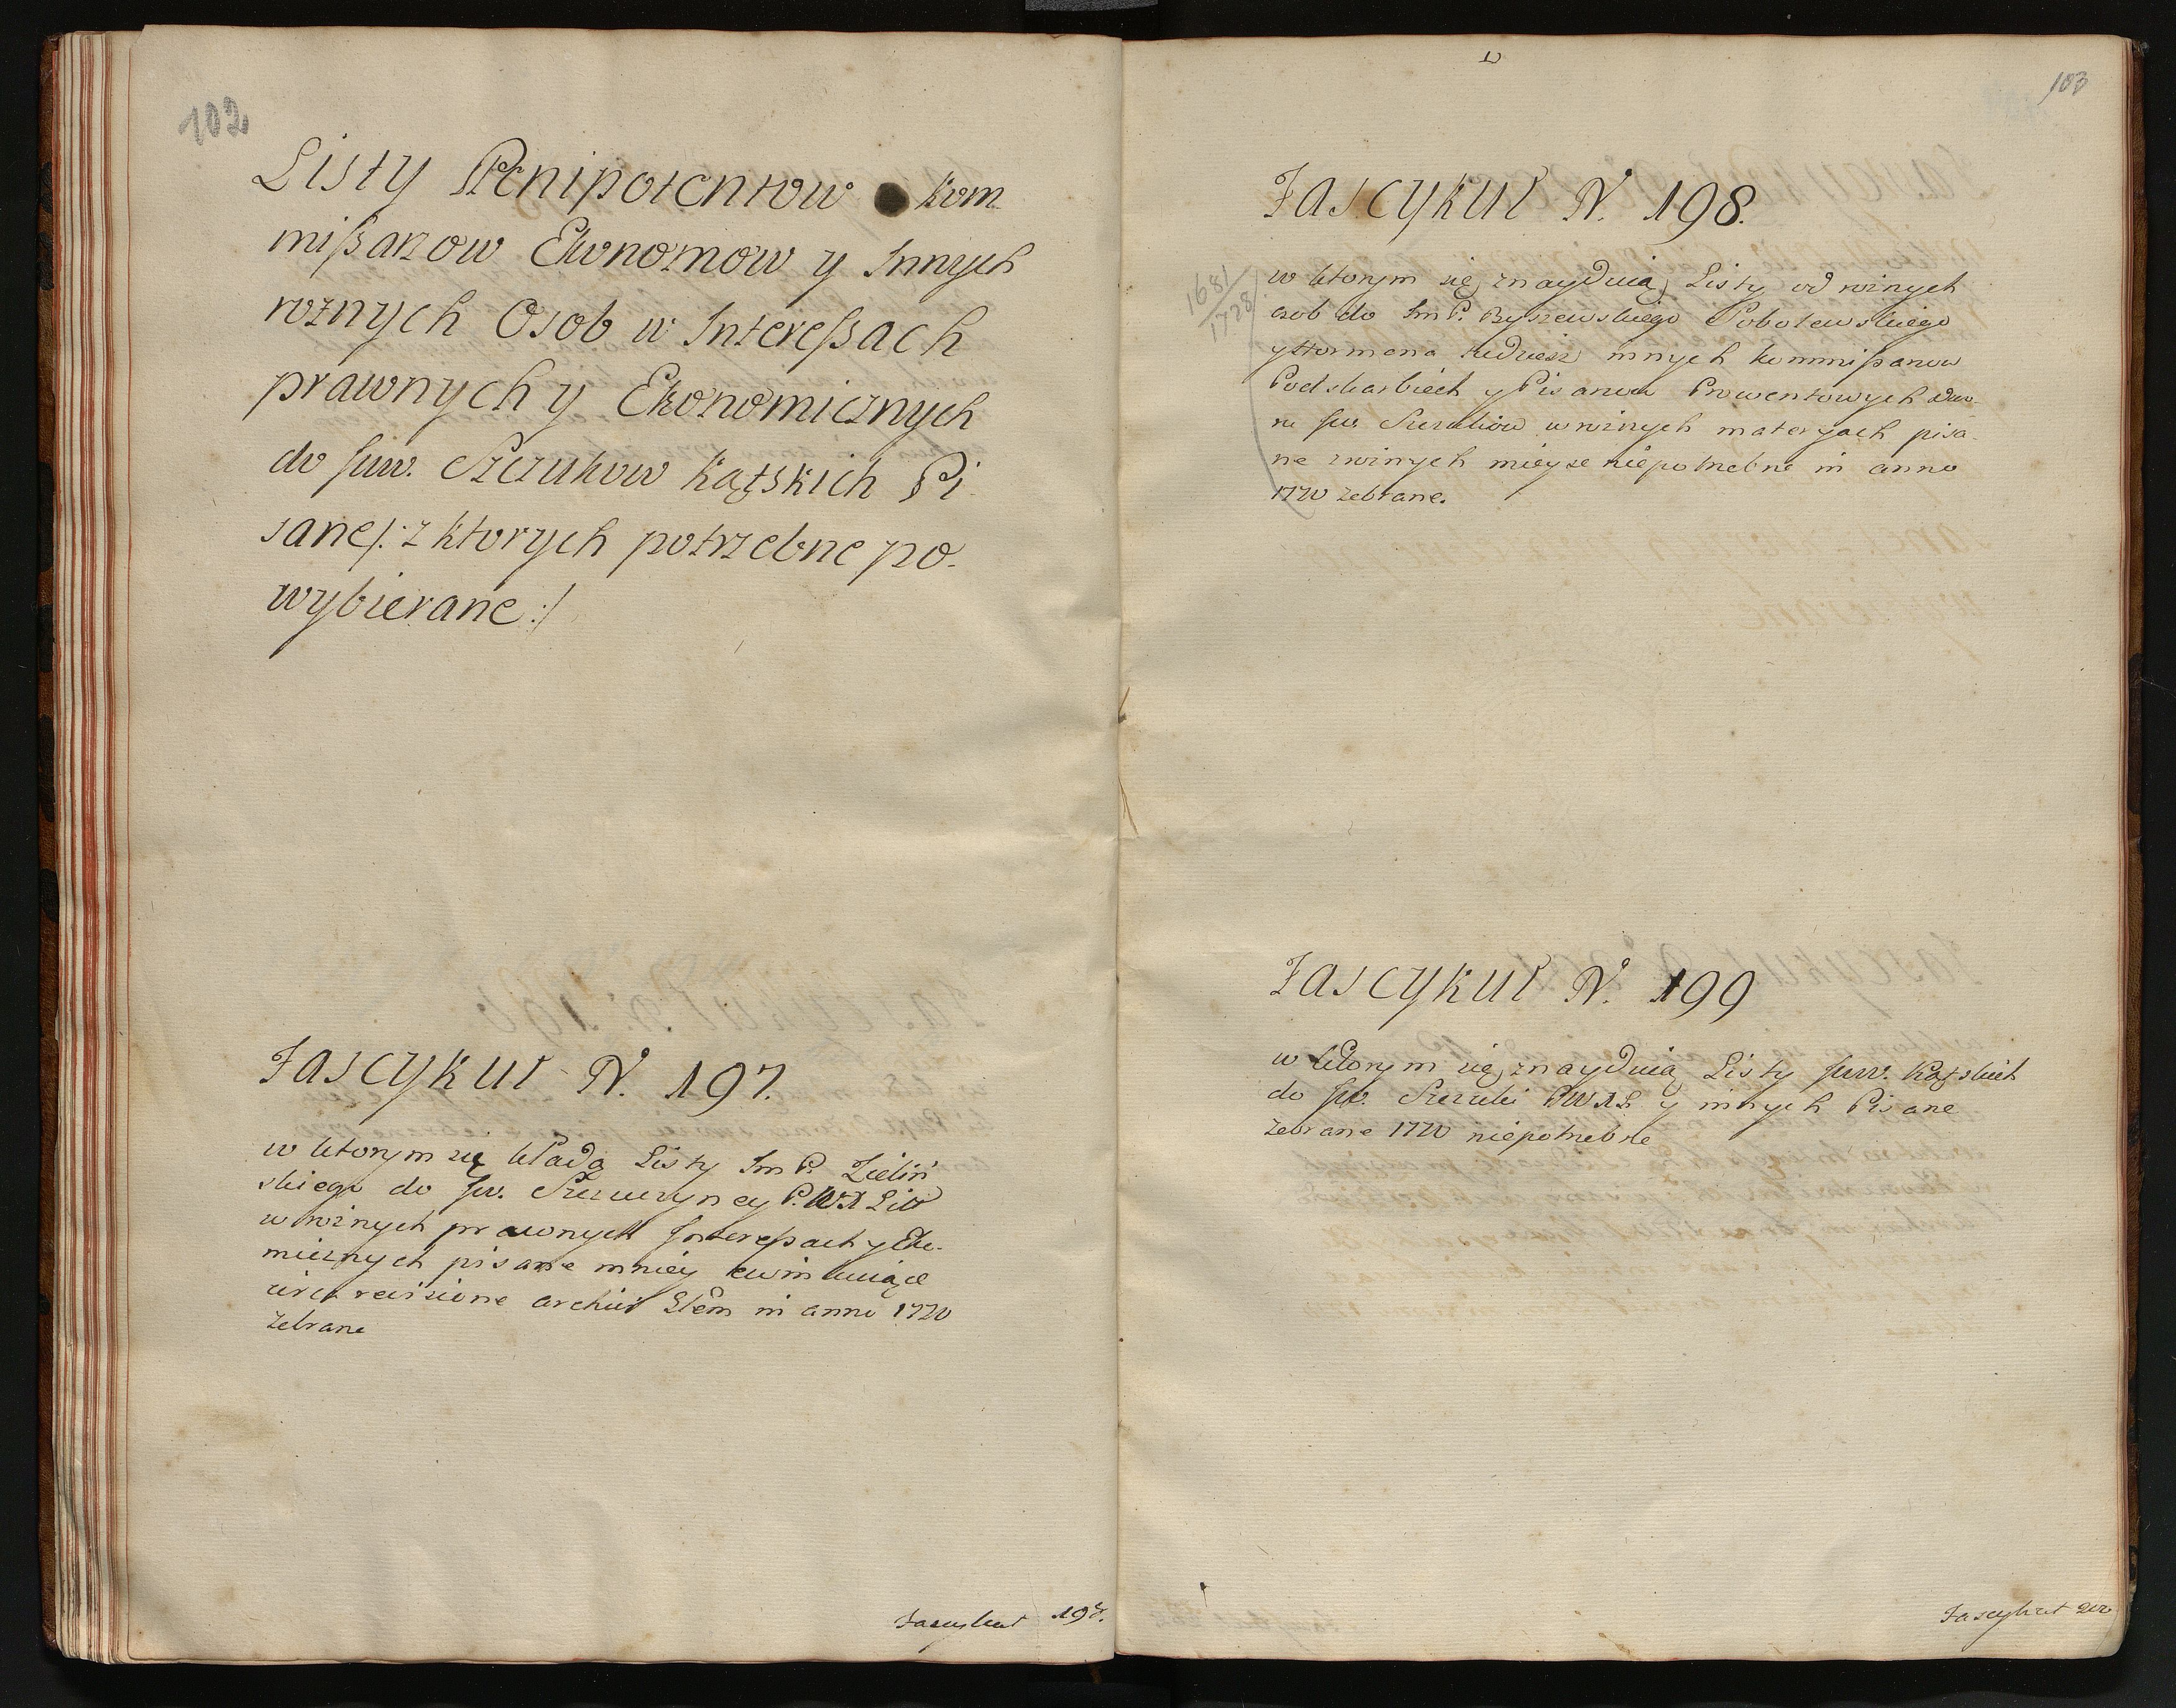 102
Listy Plenipotentow kom
mißarzow Ekonomow y Innych
roznych Osob w Intereßach
prawnych y Ekonomicznych
do Jww. Szczukow Kątskich Pi
sane /: z ktorych potrzebne po-
wybierane :/
Fascykuł N. 197.
w ktorym się kładą Listy Im P. Zieliń
skiego do Jw. Szczuczyney P. W X Lit
w roznych prawnych Intereßach y Eko-
micznych pisane mniey
circa revisione archivi Stem in anno 1770
zebrane
Fascykuł 198.
103
Fascykuł N. 198.
1681/1728
w ktorym się znayduią Listy od roznych
osob do Im P. Ryszewskiego Sobolewskiego
y tudziesz innych kommißarzow
Podskarbich y Pisarzow Prowentowych dwo-
ru Jww Szczukow w roznych materyach pisa-
ne z roznych mieysc niepotrzebne in anno
1770 zebrane.
Fascykuł N. 199
w ktorym się znayduią Listy Jww. Kątskich
do Jw. Szczuki P W X L y innych Pisane
zebrane 1770 niepotrzebne
Fascykuł 200